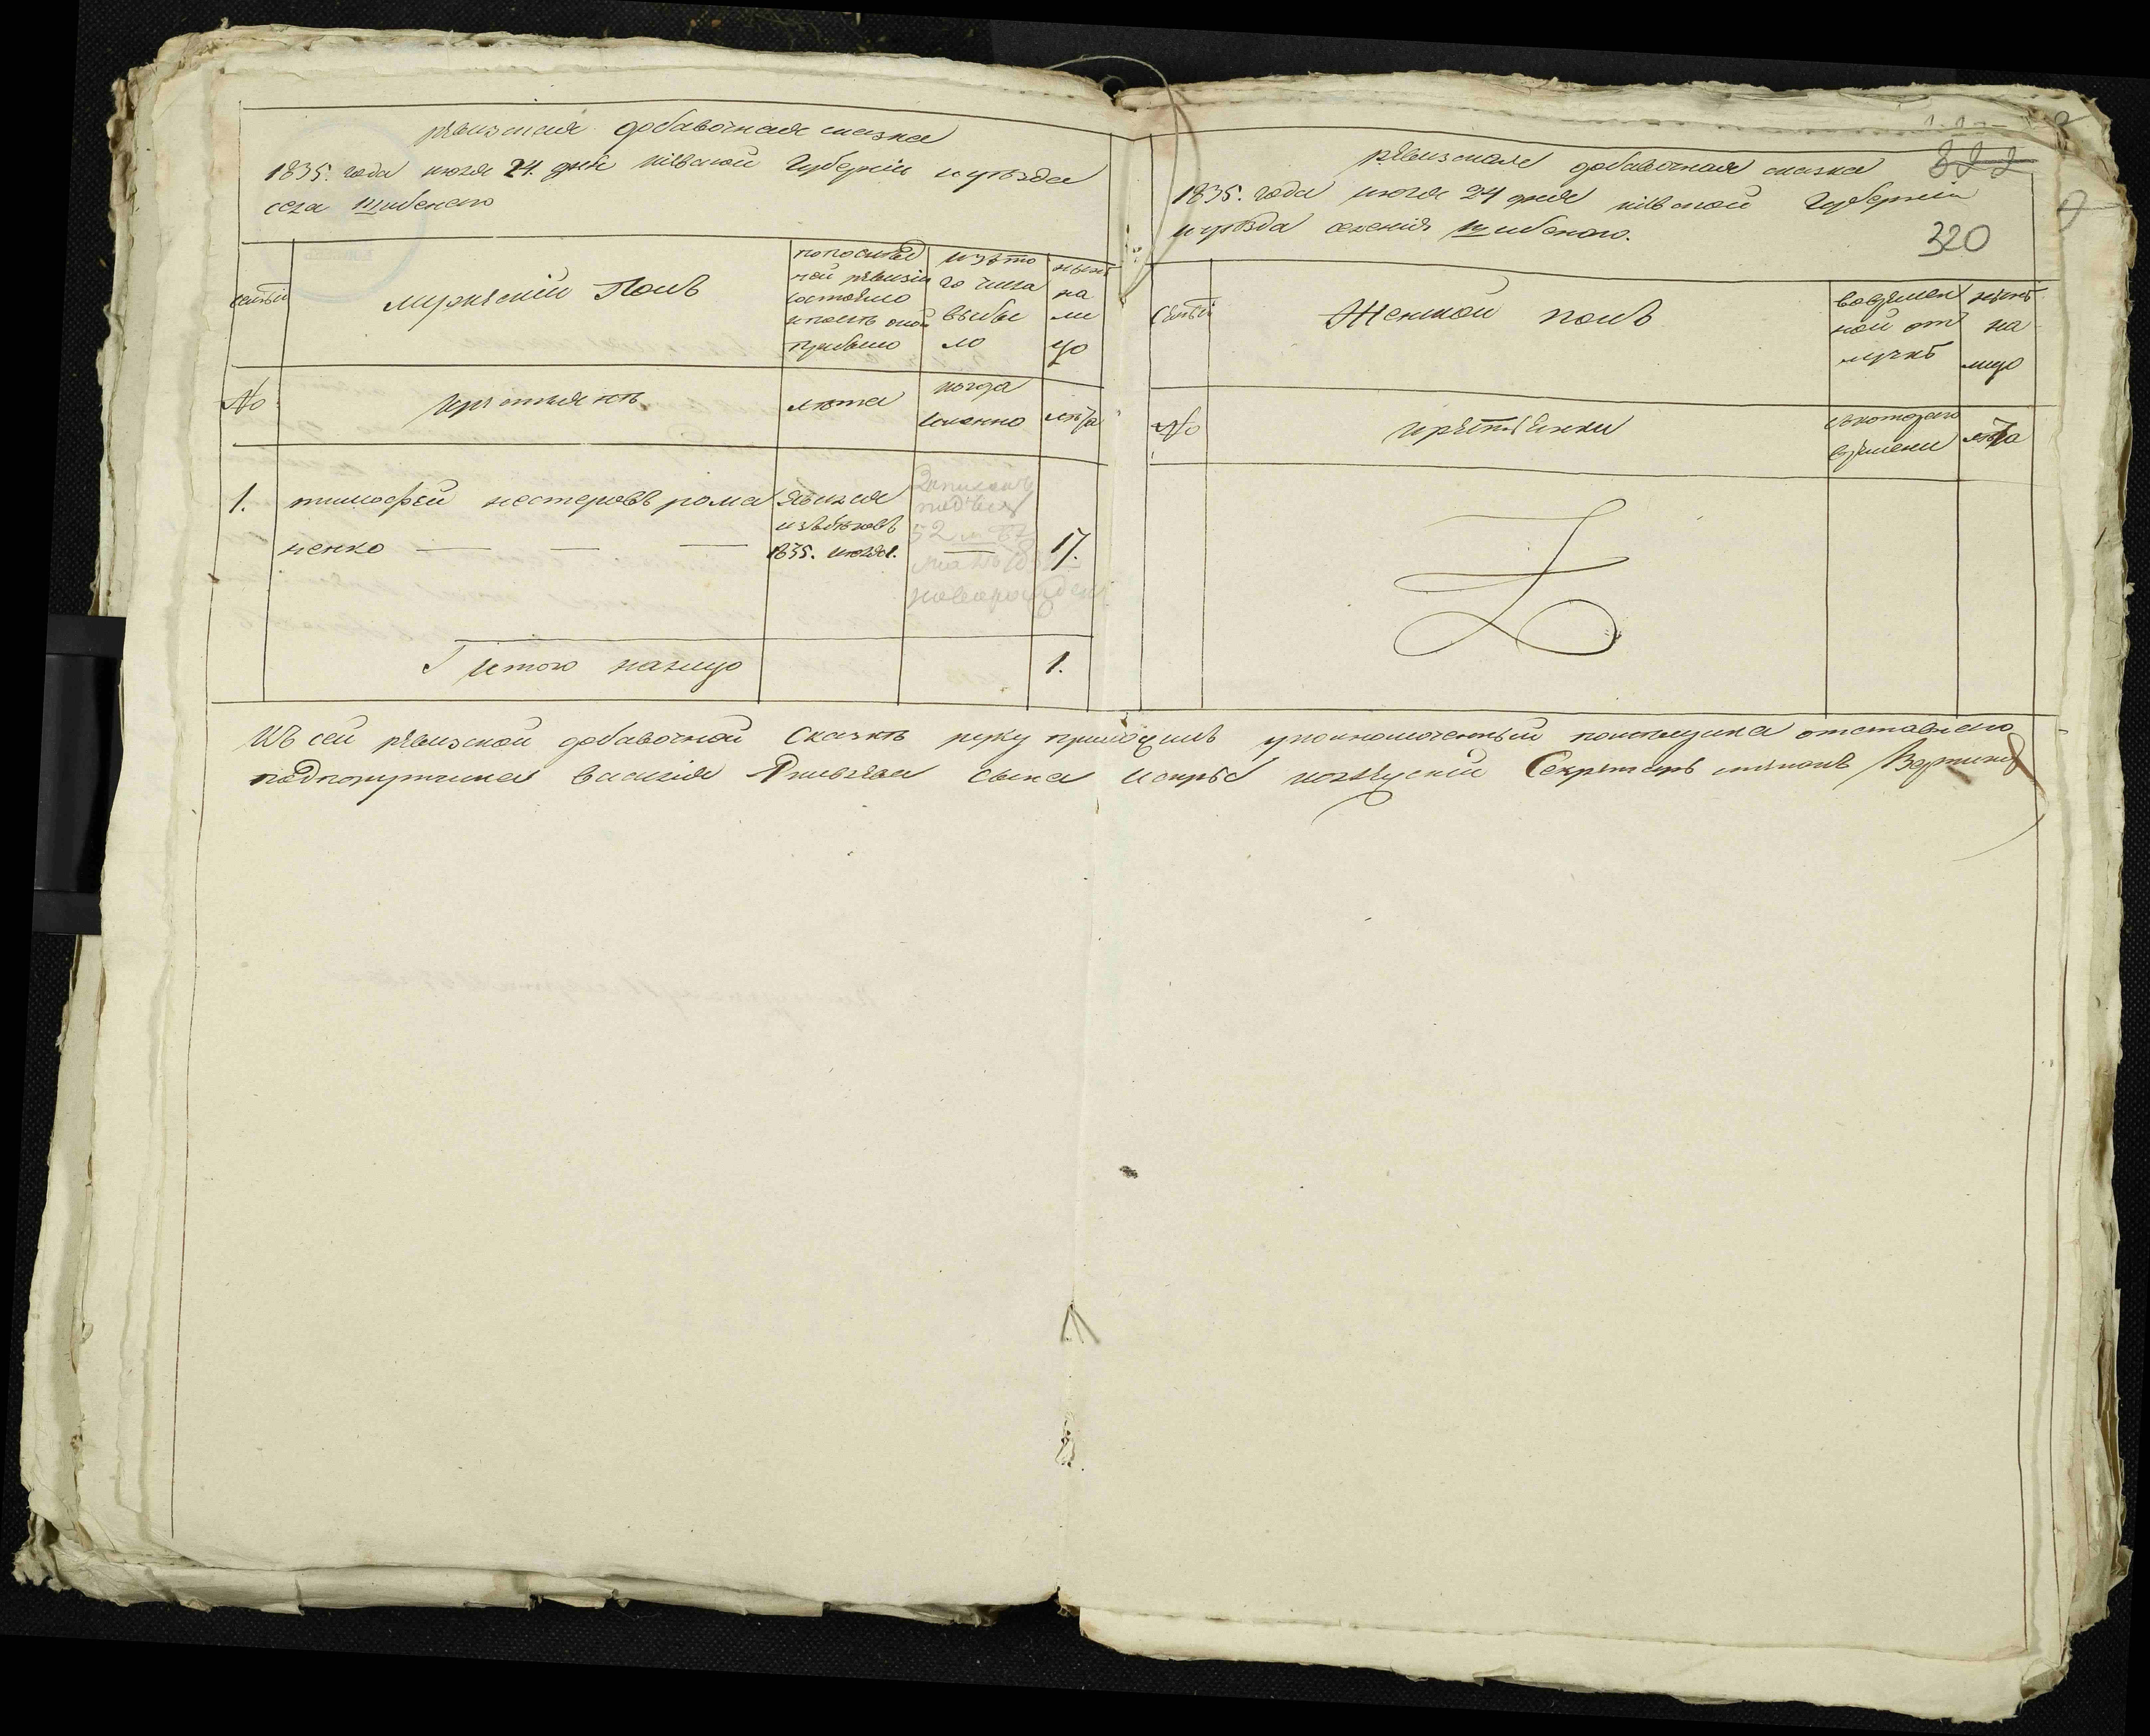 ревизская добавочная сказка
1835. года июля 24. дня кіевской Губерніи и уезда
села Шибеного
семьи
Мужескій Полъ
по последней ревизіи
состояло
и после оной
прибыло
изъ то
го числа
выбы
ло
ныне
на
ли
цо
№
крестьяне
лета
когда
именно
лета
1. тимофей нестеровъ рома
ненко
явился
изъ беговъ
1835. июля 1.
Записанъ
подъ №
52
17.
Итого налицо
1.
ревизская добавочная сказка
1835. года июля 24 дня кіевской Губерніи
и уезда селенія Шибеного.
322
320
семьи
Женской полъ
во времен
ной от
лучке
ныне
на
лицо
№
крестьянки
съ котораго
времени
лета
Къ сей ревизской добавочной Сказке руку приложилъ уполномоченный помещика отставного
подпоручика василія сына Искры Секретарь